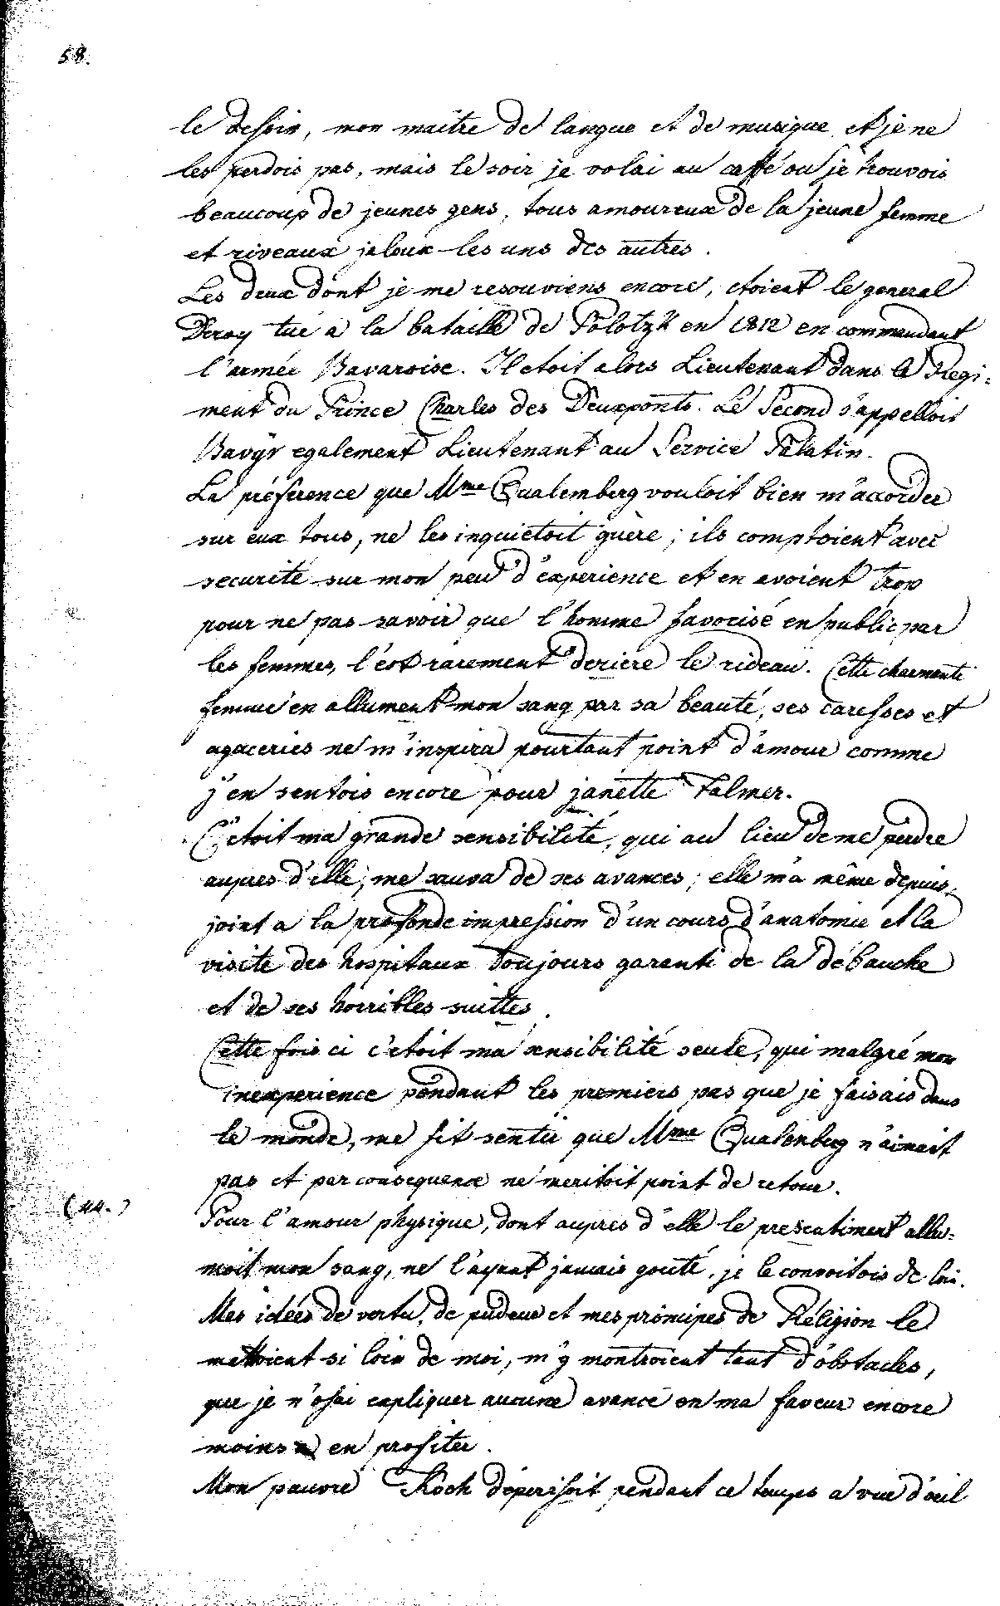 58.
le dessin, mon maitre de langue et de musique et je ne
les perdois pas, mais le soir je volai au caffé ou je trouvois
beaucoup de jeunes gens, tous amoureux de la jeune femme
et riveaux jaloux les uns des autres.
Les deux dont je me resouviens encore, etoient le general
Deroy tué a la bataille de Polotzk en 1812 en commandant
l'armée Bavaroise. Il etoit alors Lieutenant dans le Regi-
ment du Prince Charles des Deuxponts. Le Second s'appelloit
Bavÿr egalement Lieutenant au Service Palatin.
La préference que Mme Qualemberg vouloit bien m'accorder
sur eux tous, ne les inquietoit guère; ils comptoient avec
securité sur mon peu d'experience et en avoient trop
pour ne pas savoir que l'homme favorisé en public par
les femmes, l'est rarement deriere le rideau. Cette charmante
femme en allument mon sang par sa beauté, ses caresses et
agaceries ne m'inspira pourtant point d'amour comme
j'en sentois encore pour janette Palmer.
C'etoit ma grande sensibilité, qui au lieu de me perdre
aupres d'elle, me sauva de ses avances; elle m'a même depuis,
joint a la profonde impression d'un cours d'anatomie et la
visite des hospitaux toujours garanti de la débauche
et de ses horribles suittes.
Cette fois ci c'etoit ma sensibilité seule, qui malgré mon
inexperience pendant les premiers pas que je faisais dans
le monde, me fit sentir que Mme Qualenberg n'aimait
pas et par consequence ne meritoit point de retour.
(44.)
Pour l'amour physique, dont aupres d'elle le presentiment allu-
moit mon sang, ne l'ayant jamais gouté, je le convoitois de loin.
Mes idées de vertu, de pudeur et mes principes de Réligion le
mettoient si loin de moi, m'y montroient tant d'obstacles,
que je n'osai expliquer aucune avance en ma faveur encore
moins en profiter.
Mon pauvre Koch déperissoit pendant ce temps a vue d'oeil